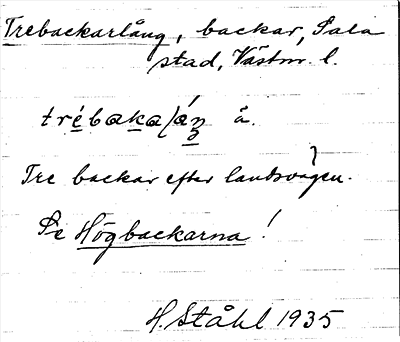 Trebackarlång, backar, Sala
stad, Västm. l.
å.
Tre backar efter landsvägen.
Se Högbackarna!
H. Ståhl 1935